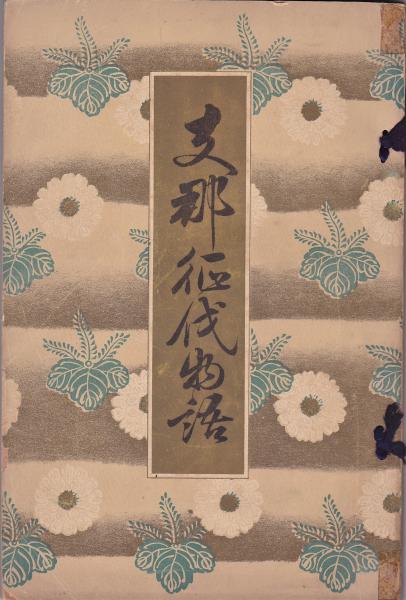 支那征伐物語